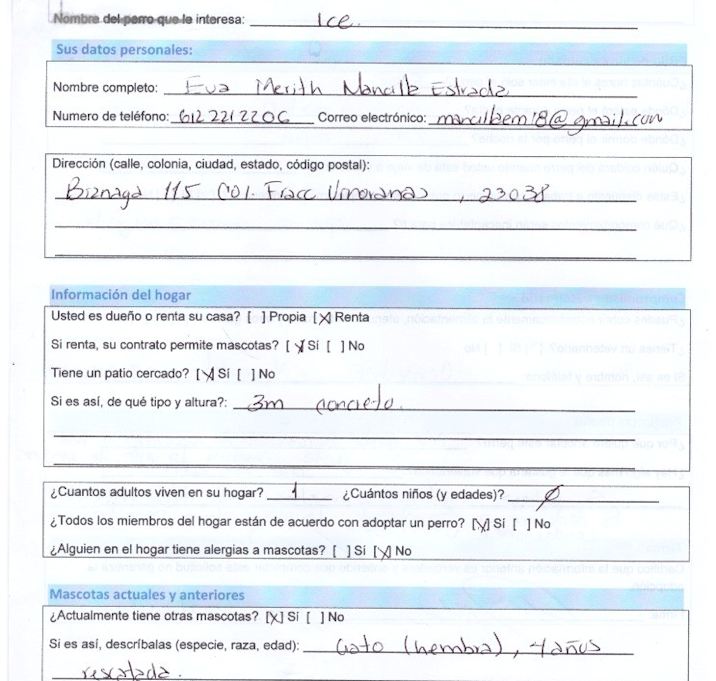 Nombre del perro que le interesa: Ice.
Sus datos personales:
Nombre completo: Eva Merith Mancilla Estrada
Numero de teléfono: 612 221 2206 Correo electrónico: mancillaem18@gmail.com
Dirección (calle, colonia, ciudad, estado, código postal):
Biznaga 115 Col. Fracc Vinoramas, 23038
Información del hogar
Usted es dueño o renta su casa? [ ] Propia [X] Renta
Si renta, su contrato permite mascotas? [X] Sí [ ] No
Tiene un patio cercado? [X] Sí [ ] No
Si es así, de qué tipo y altura?: 3m concreto.
¿Cuantos adultos viven en su hogar? 1 ¿Cuántos niños (y edades)? Ø
¿Todos los miembros del hogar están de acuerdo con adoptar un perro? [X] Sí [ ] No
¿Alguien en el hogar tiene alergias a mascotas? [ ] Sí [X] No
Mascotas actuales y anteriores
¿Actualmente tiene otras mascotas? [X] Sí [ ] No
Si es así, descríbalas (especie, raza, edad): Gato (hembra), 4 años
rescatada.